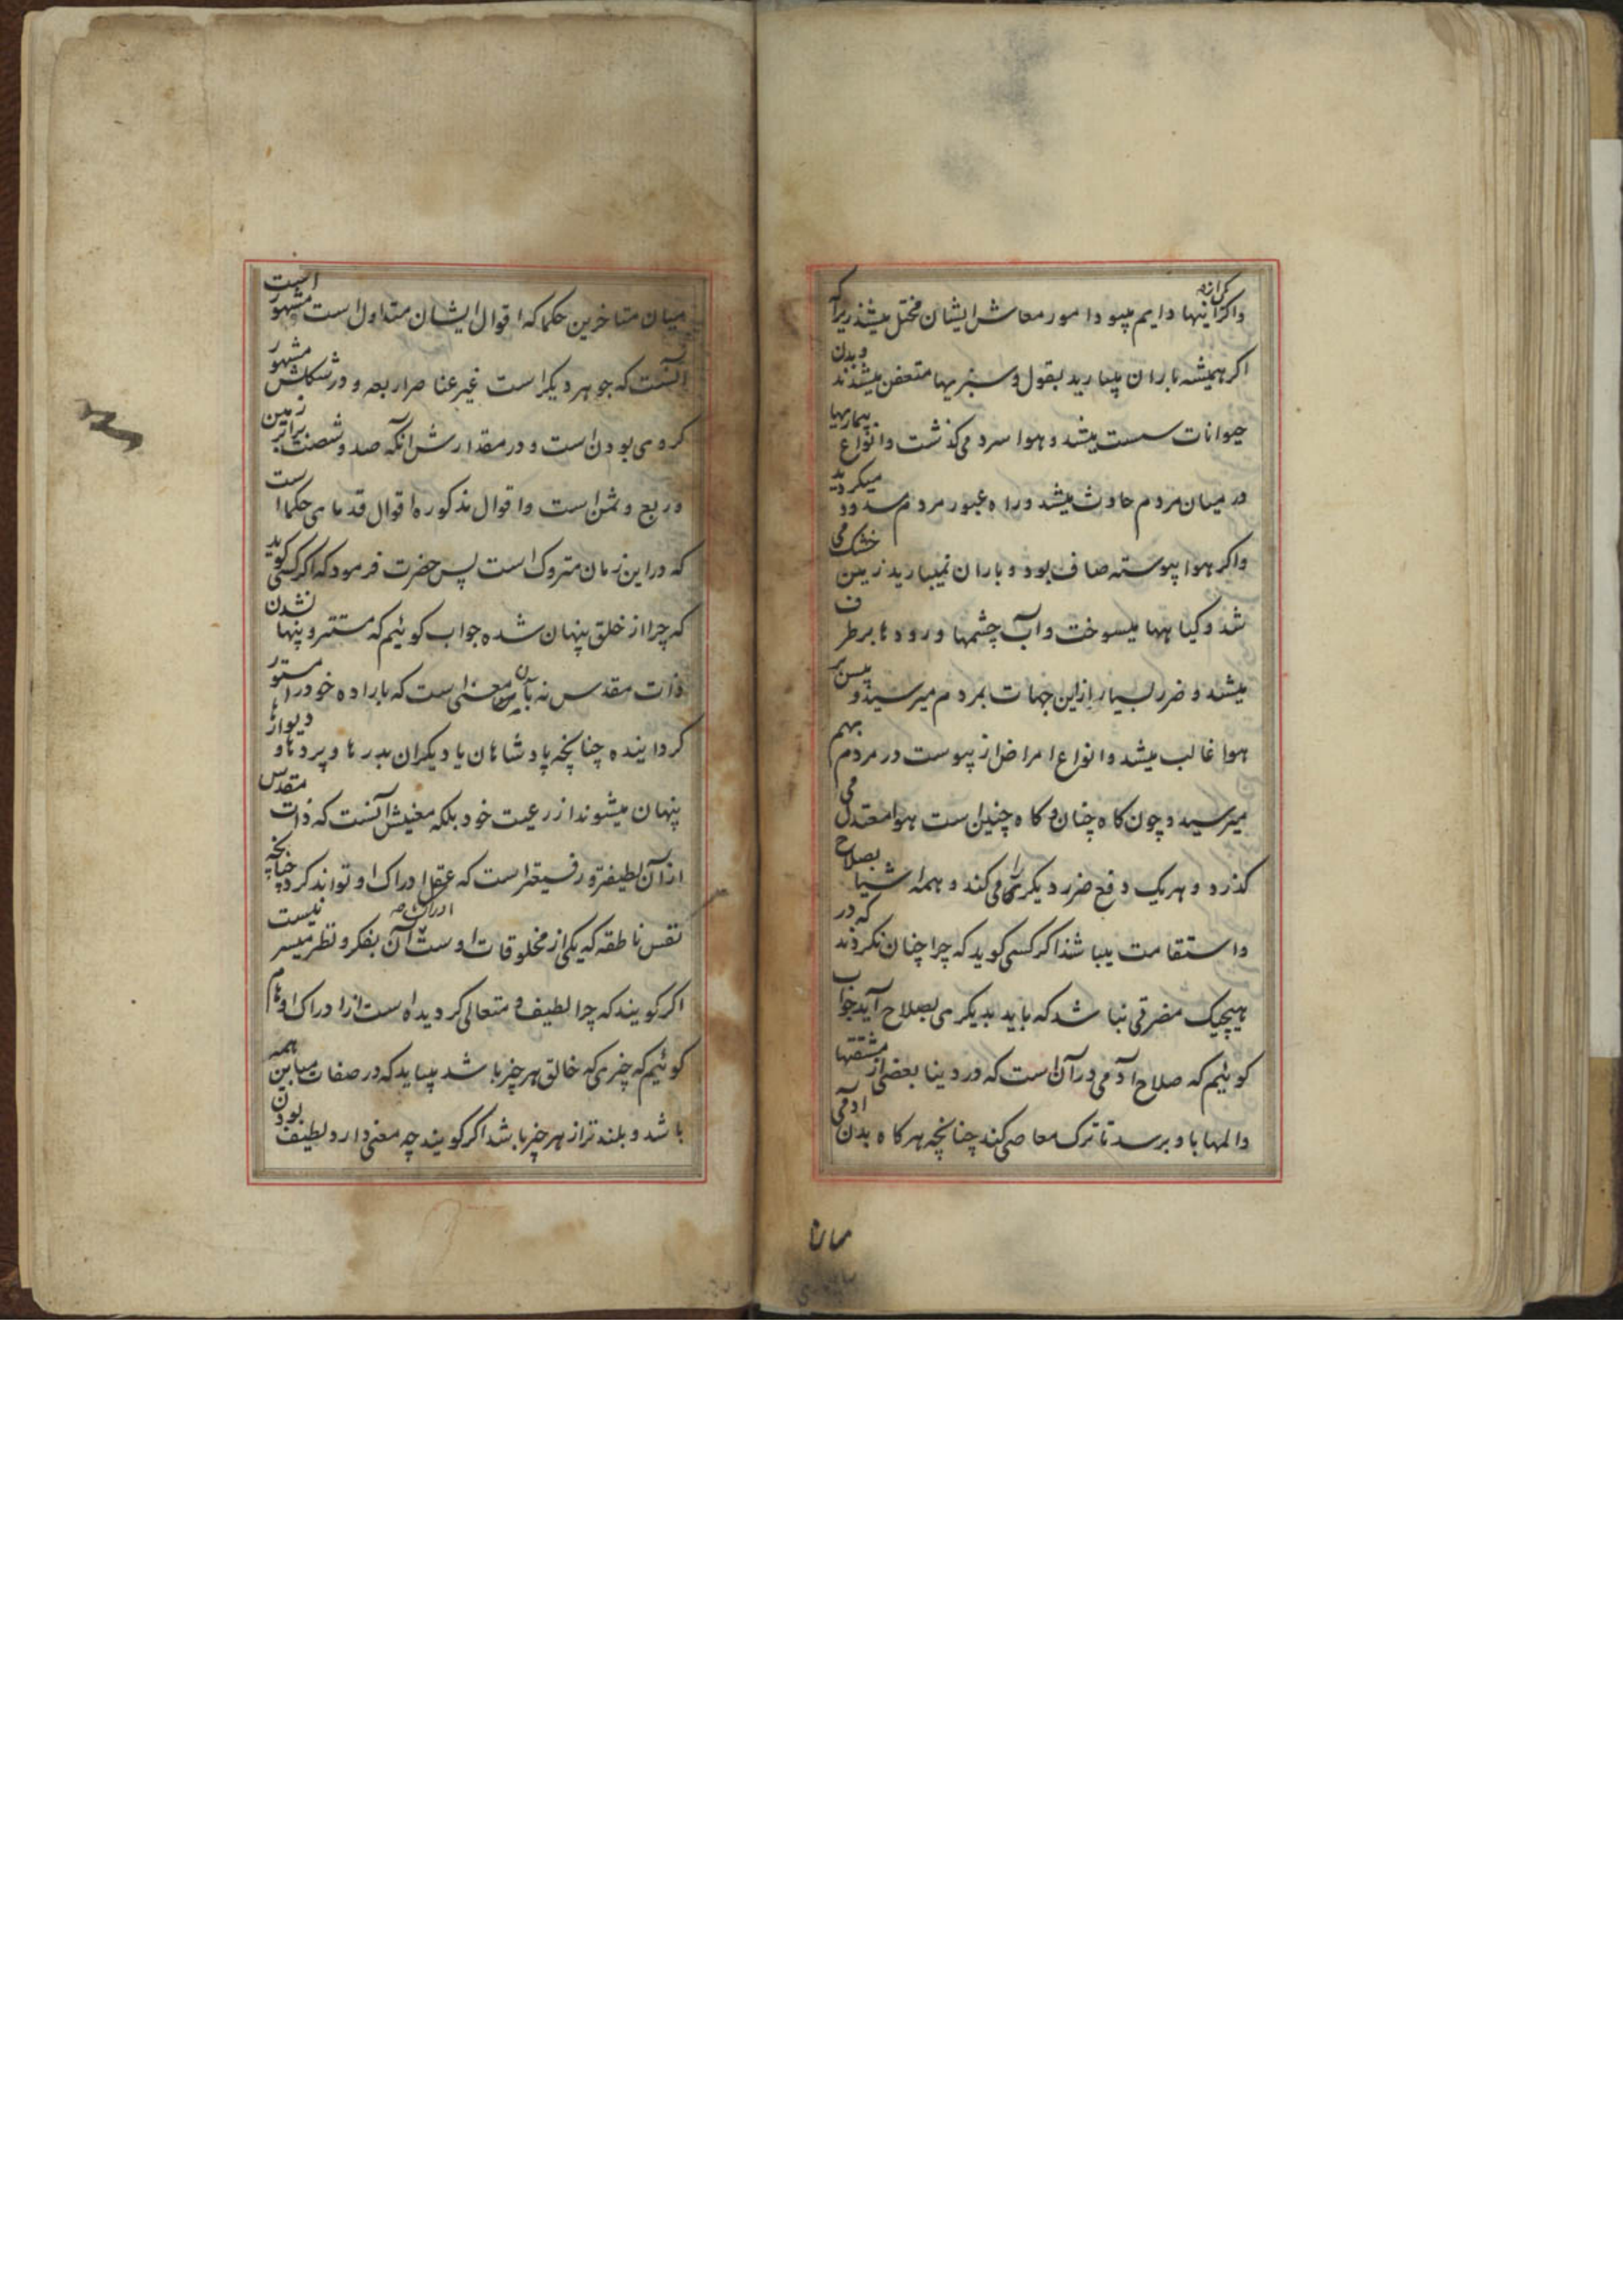 واکر اینها دایم میبود امور معاش ایشان مختل میشد زیرا که
اکر همیشه باران میبارید بقول و سبزیها متعفن میشدند و بدن
حیوانات سست میشد و هوا سرد می کذشت و انواع بیماریها
در میان مردم حادث میشد و راه عبور مردم مسدود میکردید
واکر هوا پیوسته صاف بود و باران نمیبارید زمین خشک می
شد و کیاهها میسوخت و آب چشمها و رودها برطرف
میشد و ضرر بسیار از این جهات بمردم میرسید و یبس بر
هوا غالب میشد و انواع امراض از یبوست در مردم بهم
میرسید و چون کاه چنان و کاه چنین است هوا معتدل می
کذرد و هر یک دفع ضرر دیکری را می کند و همه اشیا بصلاح
و استقامت میباشد اکر کسی کوید که چرا چنان نکردند که در
هیچیک مضرتی نباشد که باید بدیکری بصلاح آید جواب
کوئیم که صلاح آدمی در آن است که در دنیا بعضی از مشقتها
و المها باو برسد تا ترک معاصی کند چنانچه هرکاه بدن آدمی
میان متاخرین حکما که اقوال ایشان متداول است مشهور است
آنست که جوهر دیکر است غیر عناصر اربعه و در شکلش مشهور
کروی بودن است و در مقدارش آنکه صد و شصت برابر زمین
و ربع و ثمن است و اقوال مذکوره اقوال قدمای حکما است
که در این زمان متروک است پس حضرت فرمود که اکر کسی کوید
که چرا از خلق پنهان شده جواب کوئیم که مستتر و پنهان شدن
ذات مقدس نه بآن معنی است که باراده خود را مستور
کرداینده چنانچه پادشاهان یا دیکران بدرها و پردها و دیوارها
پنهان میشوند از رعیت خود بلکه معنیش آنست که ذات مقدس
از آن لطیفتر و رفیعتر است که عقل ادراک او تواند کرد چنانچه
نفس ناطقه که یکی از مخلوقات اوست ادراک آن بفکر و نظر میسر نیست
اکر کویند که چرا لطیف و متعالی کردیده است از ادراک اوهام
کوئیم که چیزی که خالق هر چیز باشد میباید که در صفات مباین همه
باشد و بلندتر از هر چیز باشد اکر کویند چه معنی دارد لطیف بودن